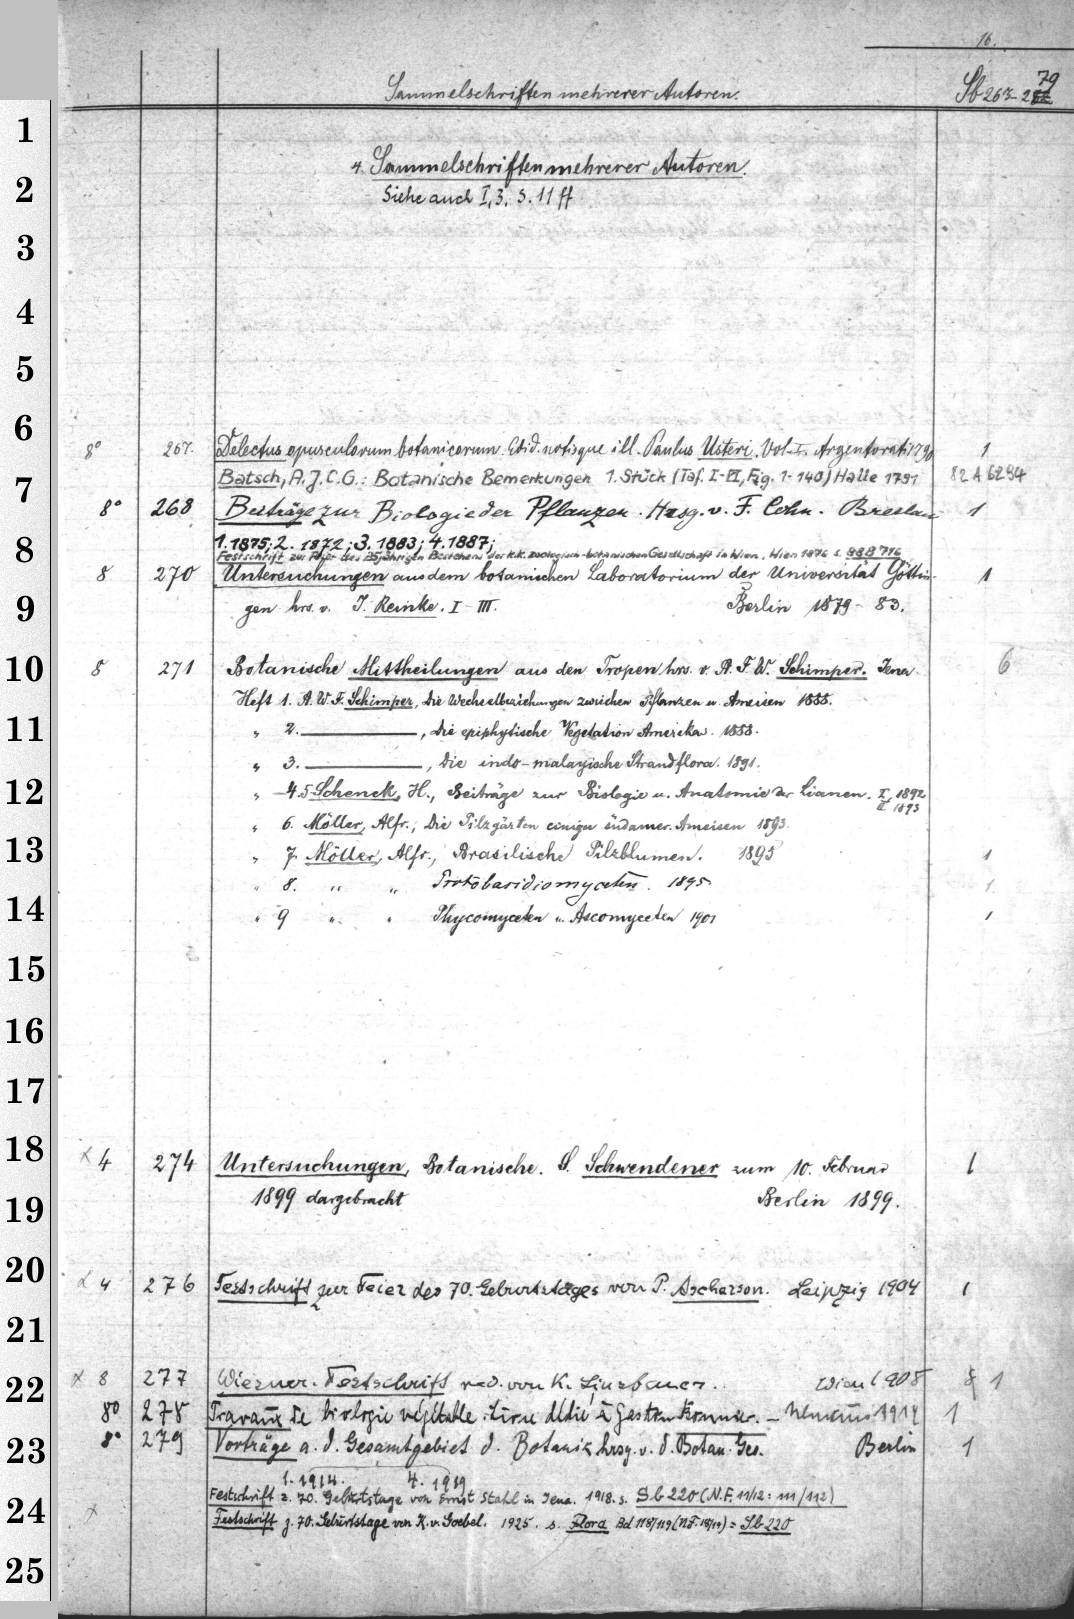 16.
Sammelschriften mehrerer Autoren. Sb 267-279
1
4. Sammelschriften mehrerer Autoren.
2
Siehe auch I, 3. S. 11 ff
3
4
5
6
8° 267. Delectus opusculorum botanicorum. Edid. notisque ill. Paulus Usteri. Vol. I. Argentorati 1790 1
7 Batsch, A.J.C.G.: Botanische Bemerkungen 1. Stück (Taf. I-VI, Fig. 1-140) Halle 1791 82 A 6294
8° 268 Beiträge zur Biologie der Pflanzen. Hrsg. v. F. Cohn. Breslau 1
8 1. 1875; 2. 1872; 3. 1883; 4. 1887;
Festschrift zur Feier des 25jährigen Bestehens der k.k. zoologisch-botanischen Gesellschaft in Wien. Wien 1876 s. 988 716
8 270 Untersuchungen aus dem botanischen Laboratorium der Universität Göttin-
9 gen hrs. v. J. Reinke. I-III. Berlin 1879-83. 1
10 8 271 Botanische Mittheilungen aus den Tropen hrs. v. A. F. W. Schimper. Jena 6
Heft 1. A. W. F. Schimper, Die Wechselbeziehungen zwischen Pflanzen u. Ameisen 1888.
11 " 2. ———, Die epiphytische Vegetation Amerikas. 1888.
" 3. ———, Die indo-malayische Strandflora. 1891.
12 " 4.5 Schenck, H., Beiträge zur Biologie u. Anatomie der Lianen. I, 1892
II. 1893
" 6. Möller, Alfr., Die Pilzgärten einiger südamer. Ameisen 1893.
13 " 7. Möller, Alfr., Brasilische Pilzblumen. 1895 1
" 8. " " Protobasidiomyceten. 1895 1.
14 " 9 " " Phycomyceten u. Ascomyceten 1901 1
15
16
17
18 x 4 274 Untersuchungen, Botanische. S. Schwendener zum 10. Februar 1
19 1899 dargebracht Berlin 1899.
20 x 4 276 Festschrift zur Feier des 70. Geburtstages von P. Ascherson. Leipzig 1904 1
21
22 x 8 277 Wiesner-Festschrift red. von K. Linsbauer. Wien 1908 1
8° 278 Travaux de biologie végétale. Livre dédié à Gaston Bonnier. – Nemours 1914 1
23 8° 279 Vorträge a. d. Gesamtgebiet d. Botanik hrsg. v. d. Botan. Ges. Berlin 1
1. 1914. 4. 1919
24 Festschrift z. 70. Geburtstage von Ernst Stahl in Jena. 1918. s. Sb 220 (N.F. 11/12 = 111/112)
x Festschrift z. 70. Geburtstage von K. v. Goebel. 1925. s. Flora Bd 118/119 (N.F. 18/19) = Sb 220
25